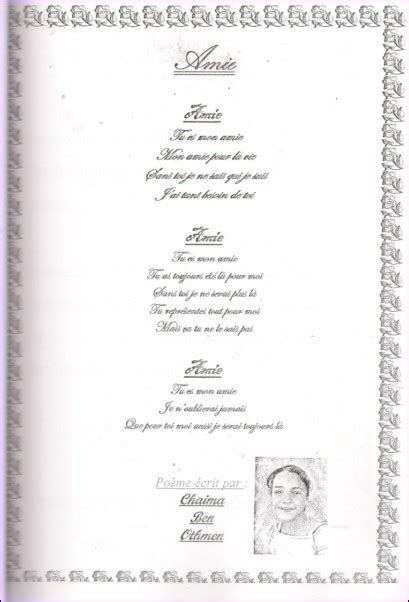 Amie
Amie
Tu es mon amie
Mon amie pour la vie
Sans toi je ne sais qui je suis
J'ai tant besoin de toi
Amie
Tu es mon amie
Tu as toujours été là pour moi
Sans toi je ne serai plus là
Tu représentes tout pour moi
Mais ça tu ne le sais pas
Amie
Tu es mon amie
Je n'oublierai jamais
Que pour toi moi aussi je serai toujours là
Poème écrit par :
Chaima
Ben
Othmen